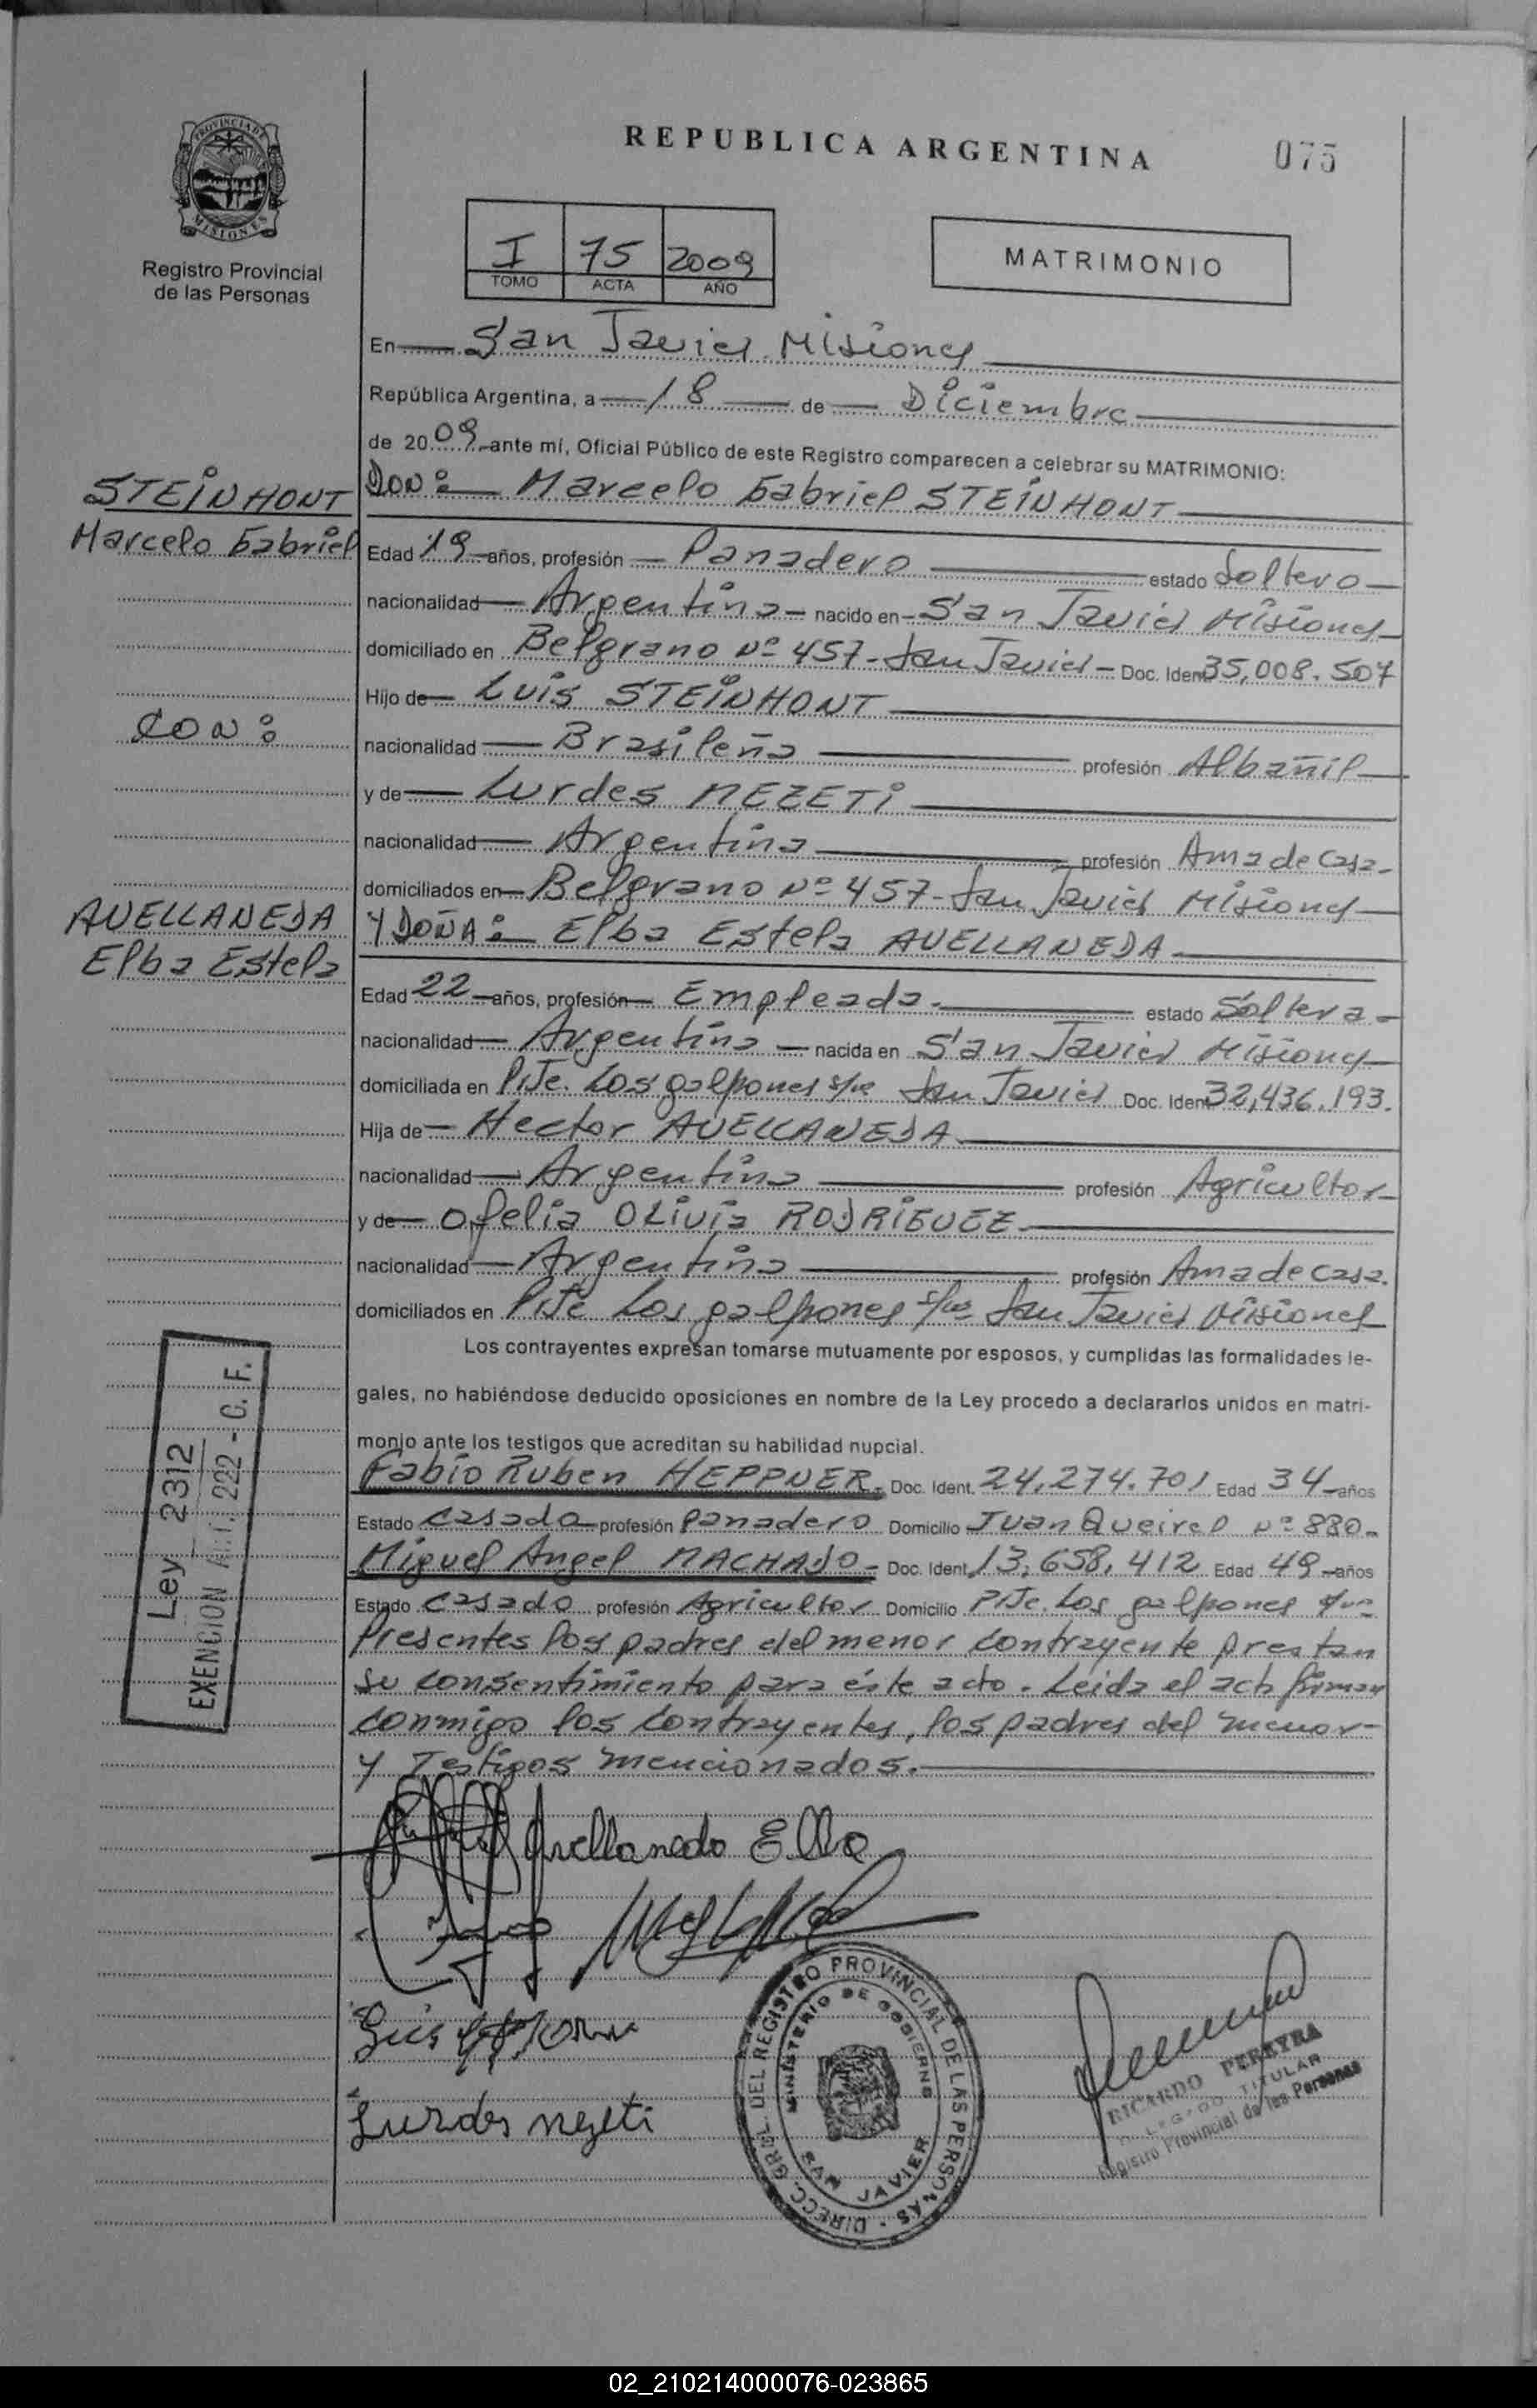 REPUBLICA ARGENTINA
075
PROVINCIA DE
MISIONES
Registro Provincial
de las Personas
I 75 2009
TOMO ACTA AÑO
MATRIMONIO
En San Javier Misiones
República Argentina, a 18 de Diciembre
de 2009 ante mí, Oficial Público de este Registro comparecen a celebrar su MATRIMONIO:
STEINHONT
Marcelo Gabriel
Don: Marcelo Gabriel STEINHONT
Edad 19 años, profesión Panadero estado Soltero
nacionalidad Argentina nacido en San Javier Misiones
domiciliado en Belgrano Nº 457 - San Javier - Doc. Iden 35,008.507
Hijo de Luis STEINHONT
CON:
nacionalidad Brasileña profesión Albañil
y de Lurdes NEZETI
nacionalidad Argentina profesión Ama de Casa.
domiciliados en Belgrano Nº 457 - San Javier Misiones
AVELLANEDA
Elba Estela
Y DOÑA: Elba Estela AVELLANEDA
Edad 22 años, profesión Empleada. estado Soltera
nacionalidad Argentina nacida en San Javier Misiones
domiciliada en Pje. Los galpones s/nº San Javier Doc. Iden 32,436.193.
Hija de Hector AVELLANEDA
nacionalidad Argentina profesión Agricultor
y de Ofelia OLIVIA RODRIGUEZ
nacionalidad Argentina profesión Ama de Casa.
domiciliados en Pje Los galpones s/nº San Javier Misiones
Los contrayentes expresan tomarse mutuamente por esposos, y cumplidas las formalidades le-
gales, no habiéndose deducido oposiciones en nombre de la Ley procedo a declararlos unidos en matri-
monio ante los testigos que acreditan su habilidad nupcial.
Fabio Ruben HEPPNER - Doc. Ident. 24.274.701 Edad 34 años
Estado Casado profesión Panadero Domicilio Juan Queirel Nº 880
Miguel Angel MACHADO - Doc. Ident. 13,658,412 Edad 49 años
Estado Casado profesión Agricultor Domicilio Pje. Los galpones s/nº
Presentes los padres del menor contrayente prestan
su consentimiento para éste acto. Leida el acta firman
conmigo los contrayentes, los padres del menor
y Testigos mencionados.
Ley 2312
EXENCION Art. 222 - C. F.
Avellaneda Elba
Luis
Lurdes nezeti
DIRECC. GRAL. DEL REGISTRO PROVINCIAL DE LAS PERSONAS
MINISTERIO DE GOBIERNO
SAN JAVIER
RICARDO PEREYRA
TITULAR
Registro Provincial de las Personas
02_210214000076-023865